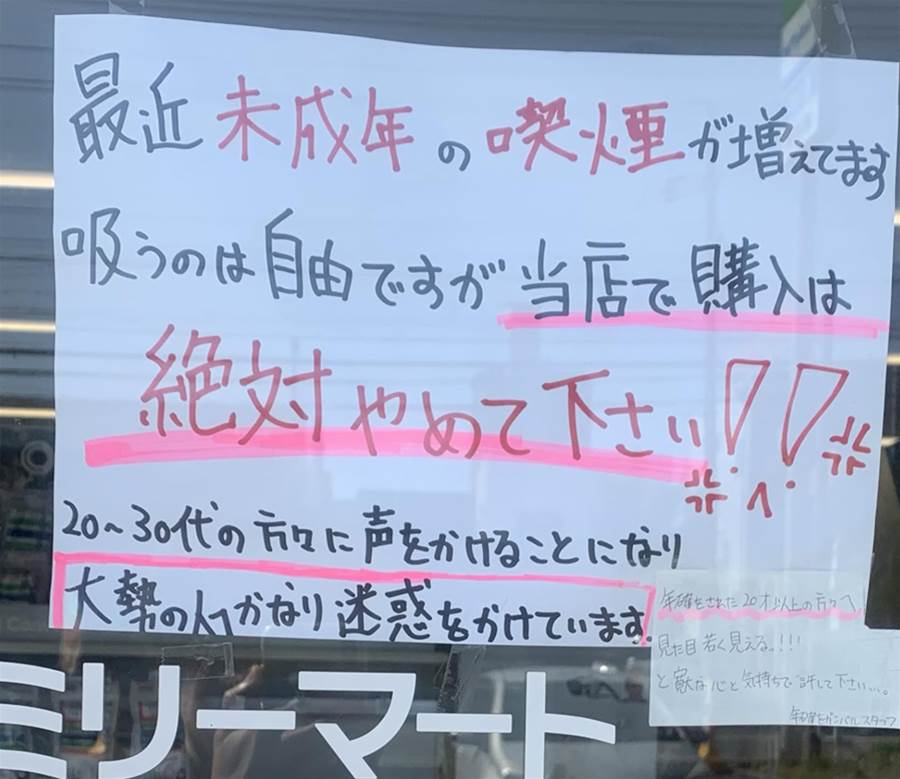 最近未成年の喫煙が増えてます
吸うのは自由ですが当店で購入は
絶対やめて下さい!!
20~30代の方々に声をかけることになり
大勢の人かなり迷惑をかけています。
年確をされた20才以上の方々へ
見た目若く見える…!!!
と寛大な心と気持ちで許して下さい…。
年確をガンバルスタッフ
ミリーマート